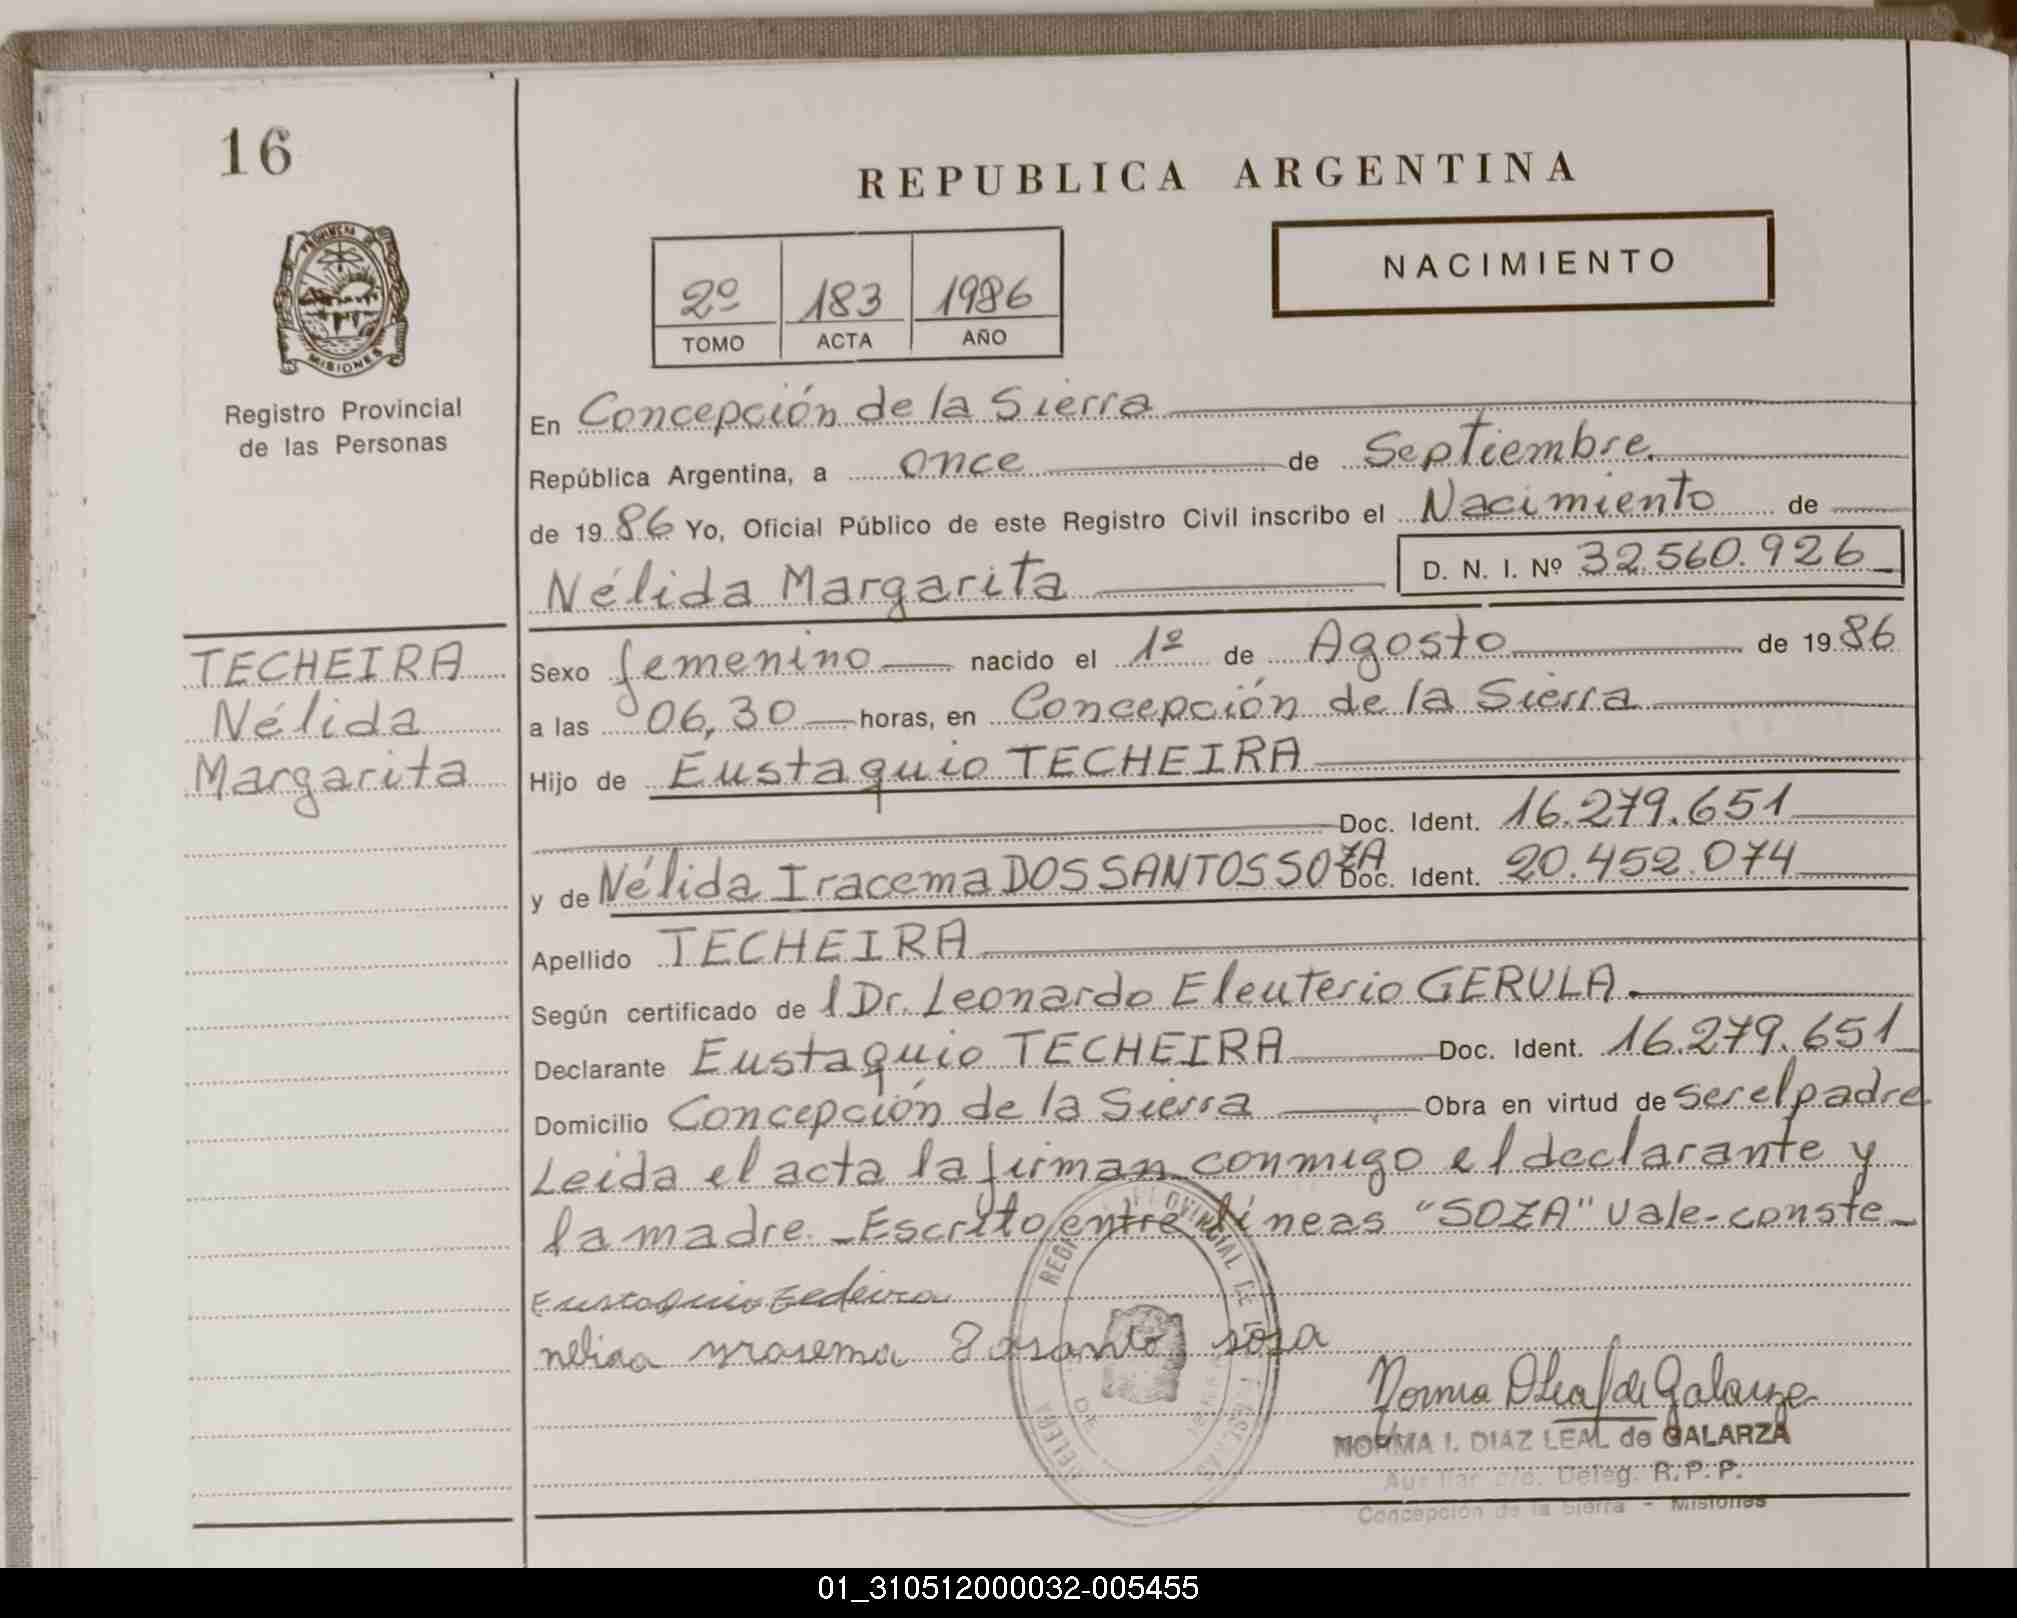 16
REPUBLICA ARGENTINA
PROVINCIA DE
MISIONES
Registro Provincial
de las Personas
NACIMIENTO
2º 183 1986
TOMO ACTA AÑO
En Concepción de la Sierra
República Argentina, a once de Septiembre
de 1986 Yo, Oficial Público de este Registro Civil inscribo el Nacimiento de
Nélida Margarita D. N. I. Nº 32.560.926
TECHEIRA
Nélida
Margarita
Sexo femenino nacido el 1º de Agosto de 1986
a las 06,30 horas, en Concepción de la Sierra
Hijo de Eustaquio TECHEIRA
Doc. Ident. 16.279.651
y de Nélida Iracema DOS SANTOS SOZA Doc. Ident. 20.452.074
Apellido TECHEIRA
Según certificado de l Dr. Leonardo Eleuterio GERULA.
Declarante Eustaquio TECHEIRA Doc. Ident. 16.279.651
Domicilio Concepción de la Sierra Obra en virtud de ser el padre
Leida el acta la firman conmigo el declarante y
la madre. - Escrito entre líneas "SOZA" Vale-conste
Eustaquio
sosa
REGISTRO PROVINCIAL DE LAS PERSONAS
Norma D Leal de Galarza
NORMA I. DIAZ LEAL de GALARZA
Auxiliar c/c. Deleg. R.P.P.
Concepción de la Sierra - Misiones
01_310512000032-005455